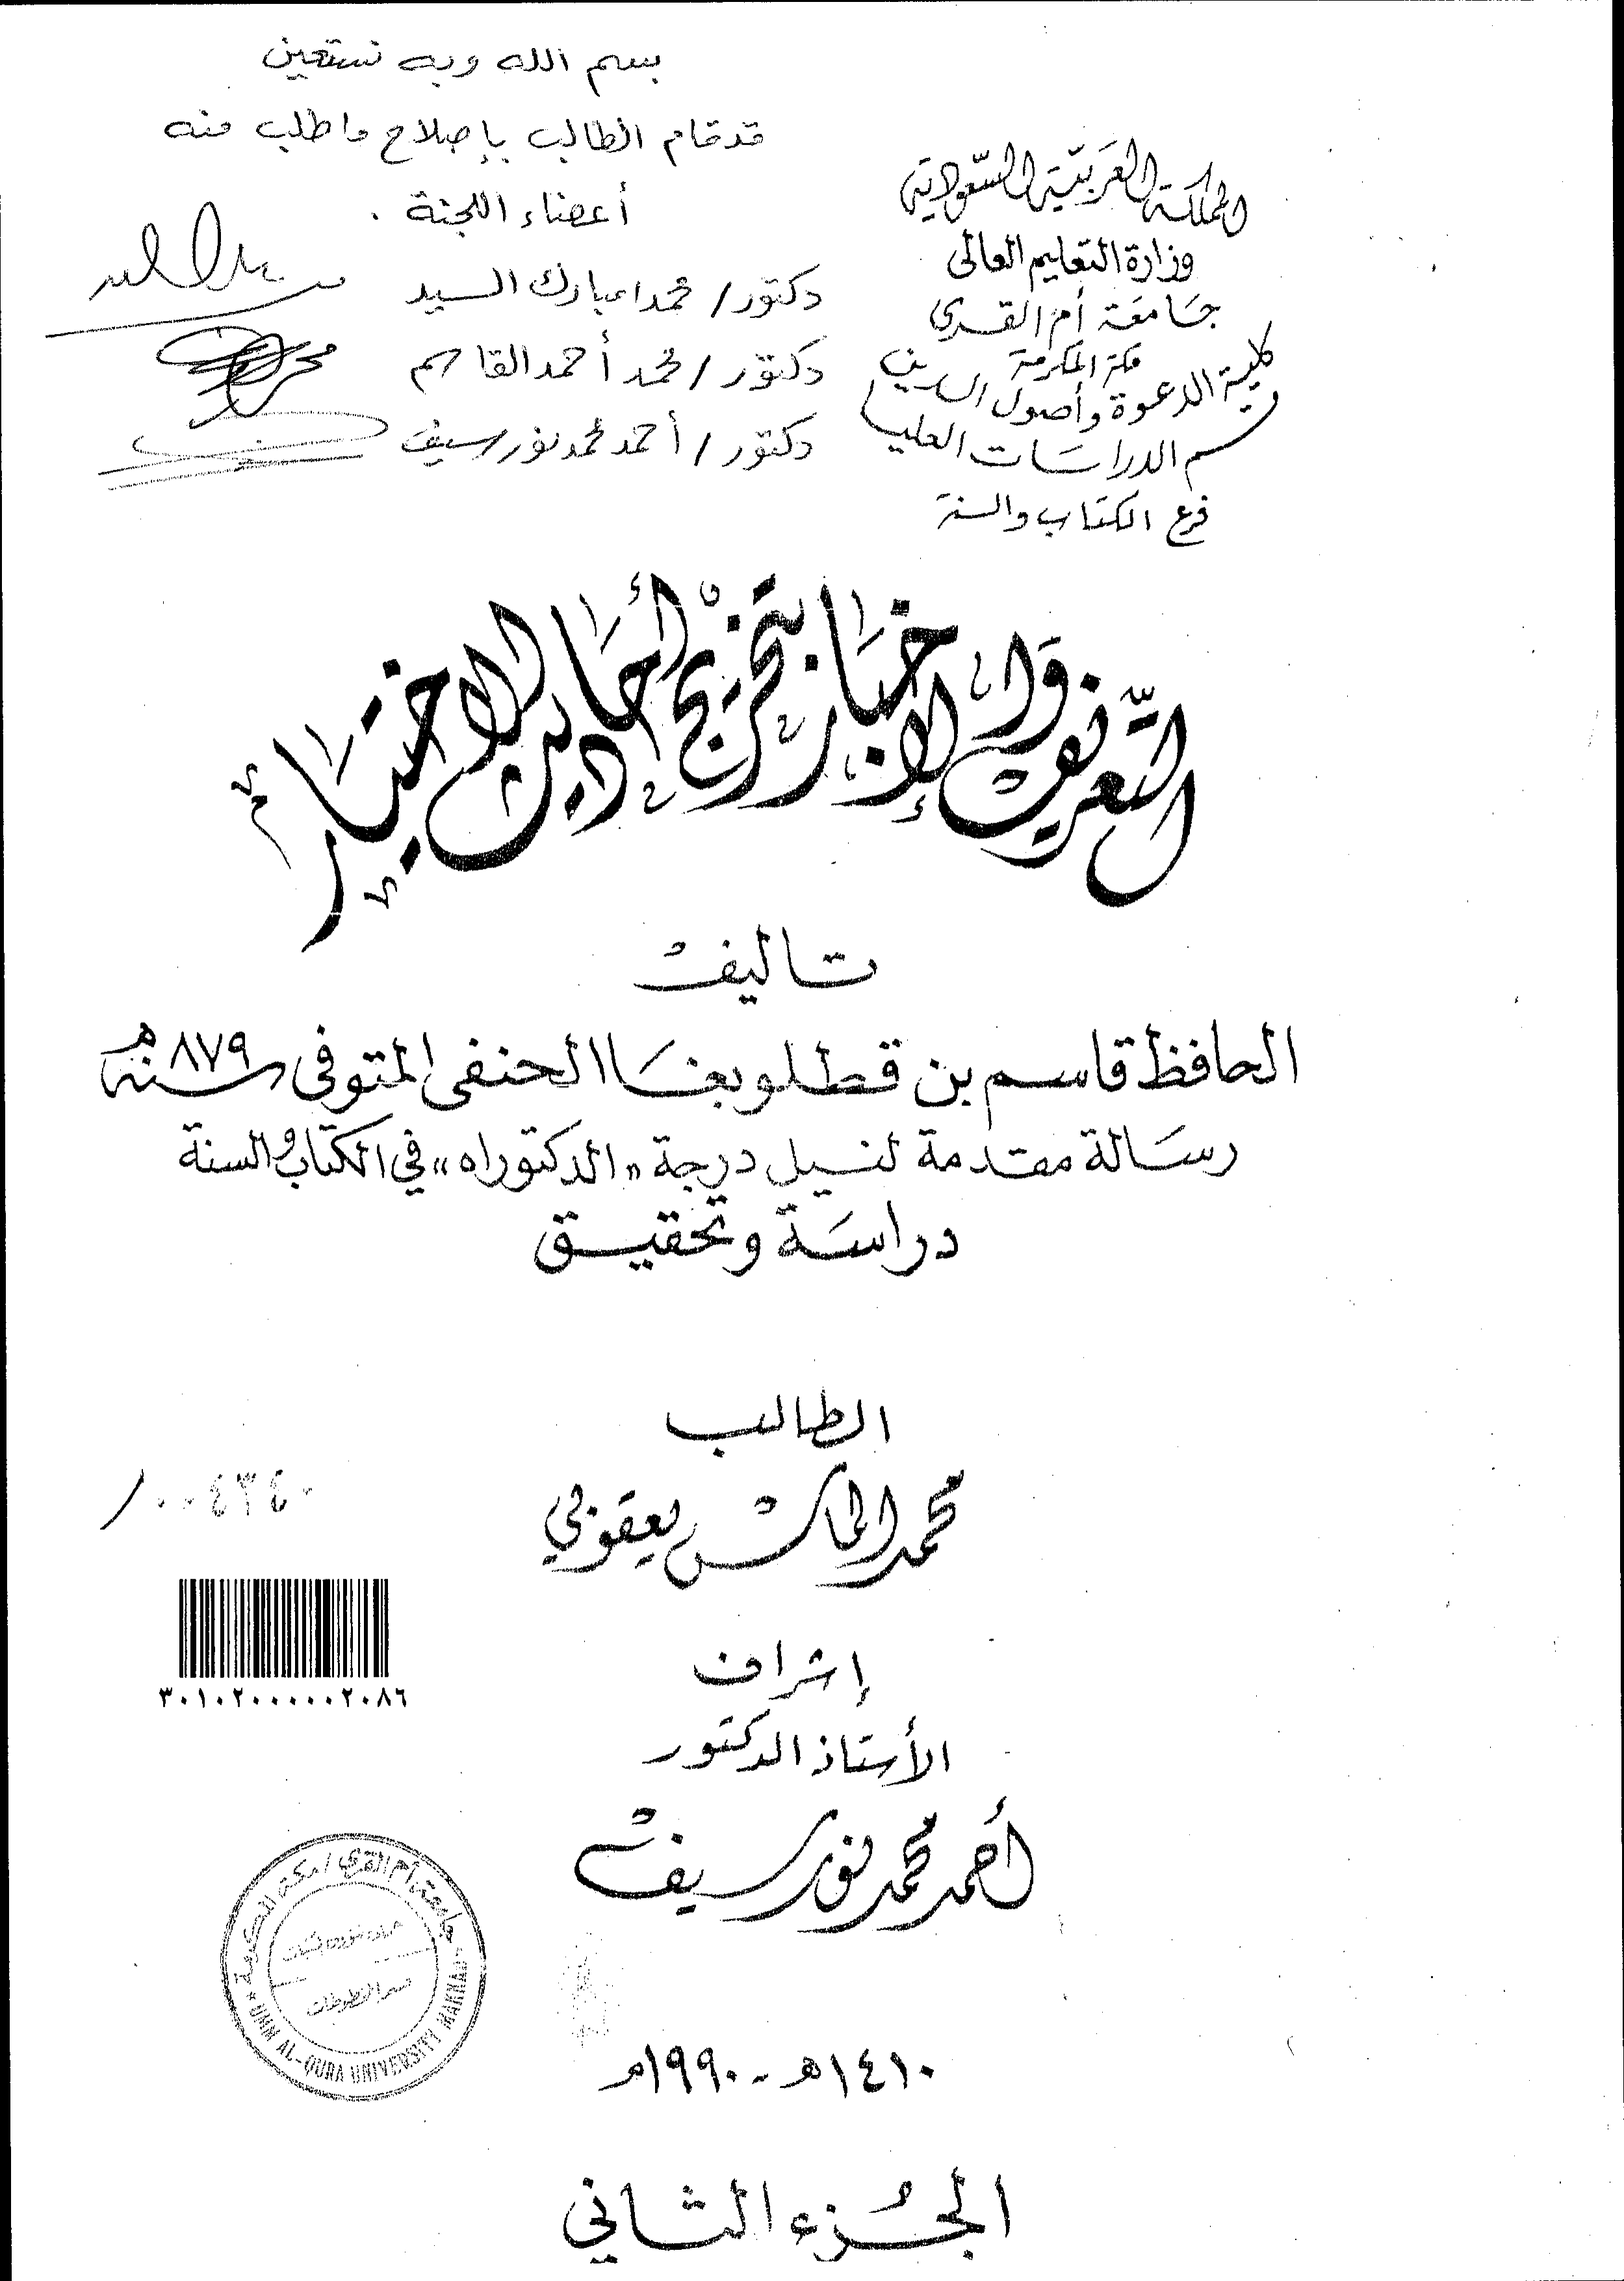 بسم الله وبه نستعين
قد قام الطالب بإصلاح ما طلب منه
أعضاء اللجنة .
دكتور / محمد مبارك السيد
دكتور / محمد أحمد القاسم
دكتور / أحمد محمد نور سيف
المملكة العربية السعودية
وزارة التعليم العالى
جامعة أم القرى
مكة المكرمة
كلية الدعوة وأصول الدين
قسم الدراسات العليا
فرع الكتاب والسنة
التعريف والإخبار بتخريج أحاديث الاختيار
تاليف
الحافظ قاسم بن قطلوبغا الحنفى المتوفى سنة ٨٧٩ هـ
رسالة مقدمة لنيل درجة «الدكتوراه» في الكتاب والسنة
دراسة وتحقيق
الطالب
محمد الماس يعقوبي
٠٠٤٣٤٠
٣٠١٠٢٠٠٠٠٠٢٠٨٦
إشراف
الأستاذ الدكتور
أحمد محمد نور سيف
جامعة أم القرى / مكة المكرمة
UMM AL-QURA UNIVERSITY MAKKAH
قسم المخطوطات
١٤١٠هـ - ١٩٩٠م
الجزء الثاني